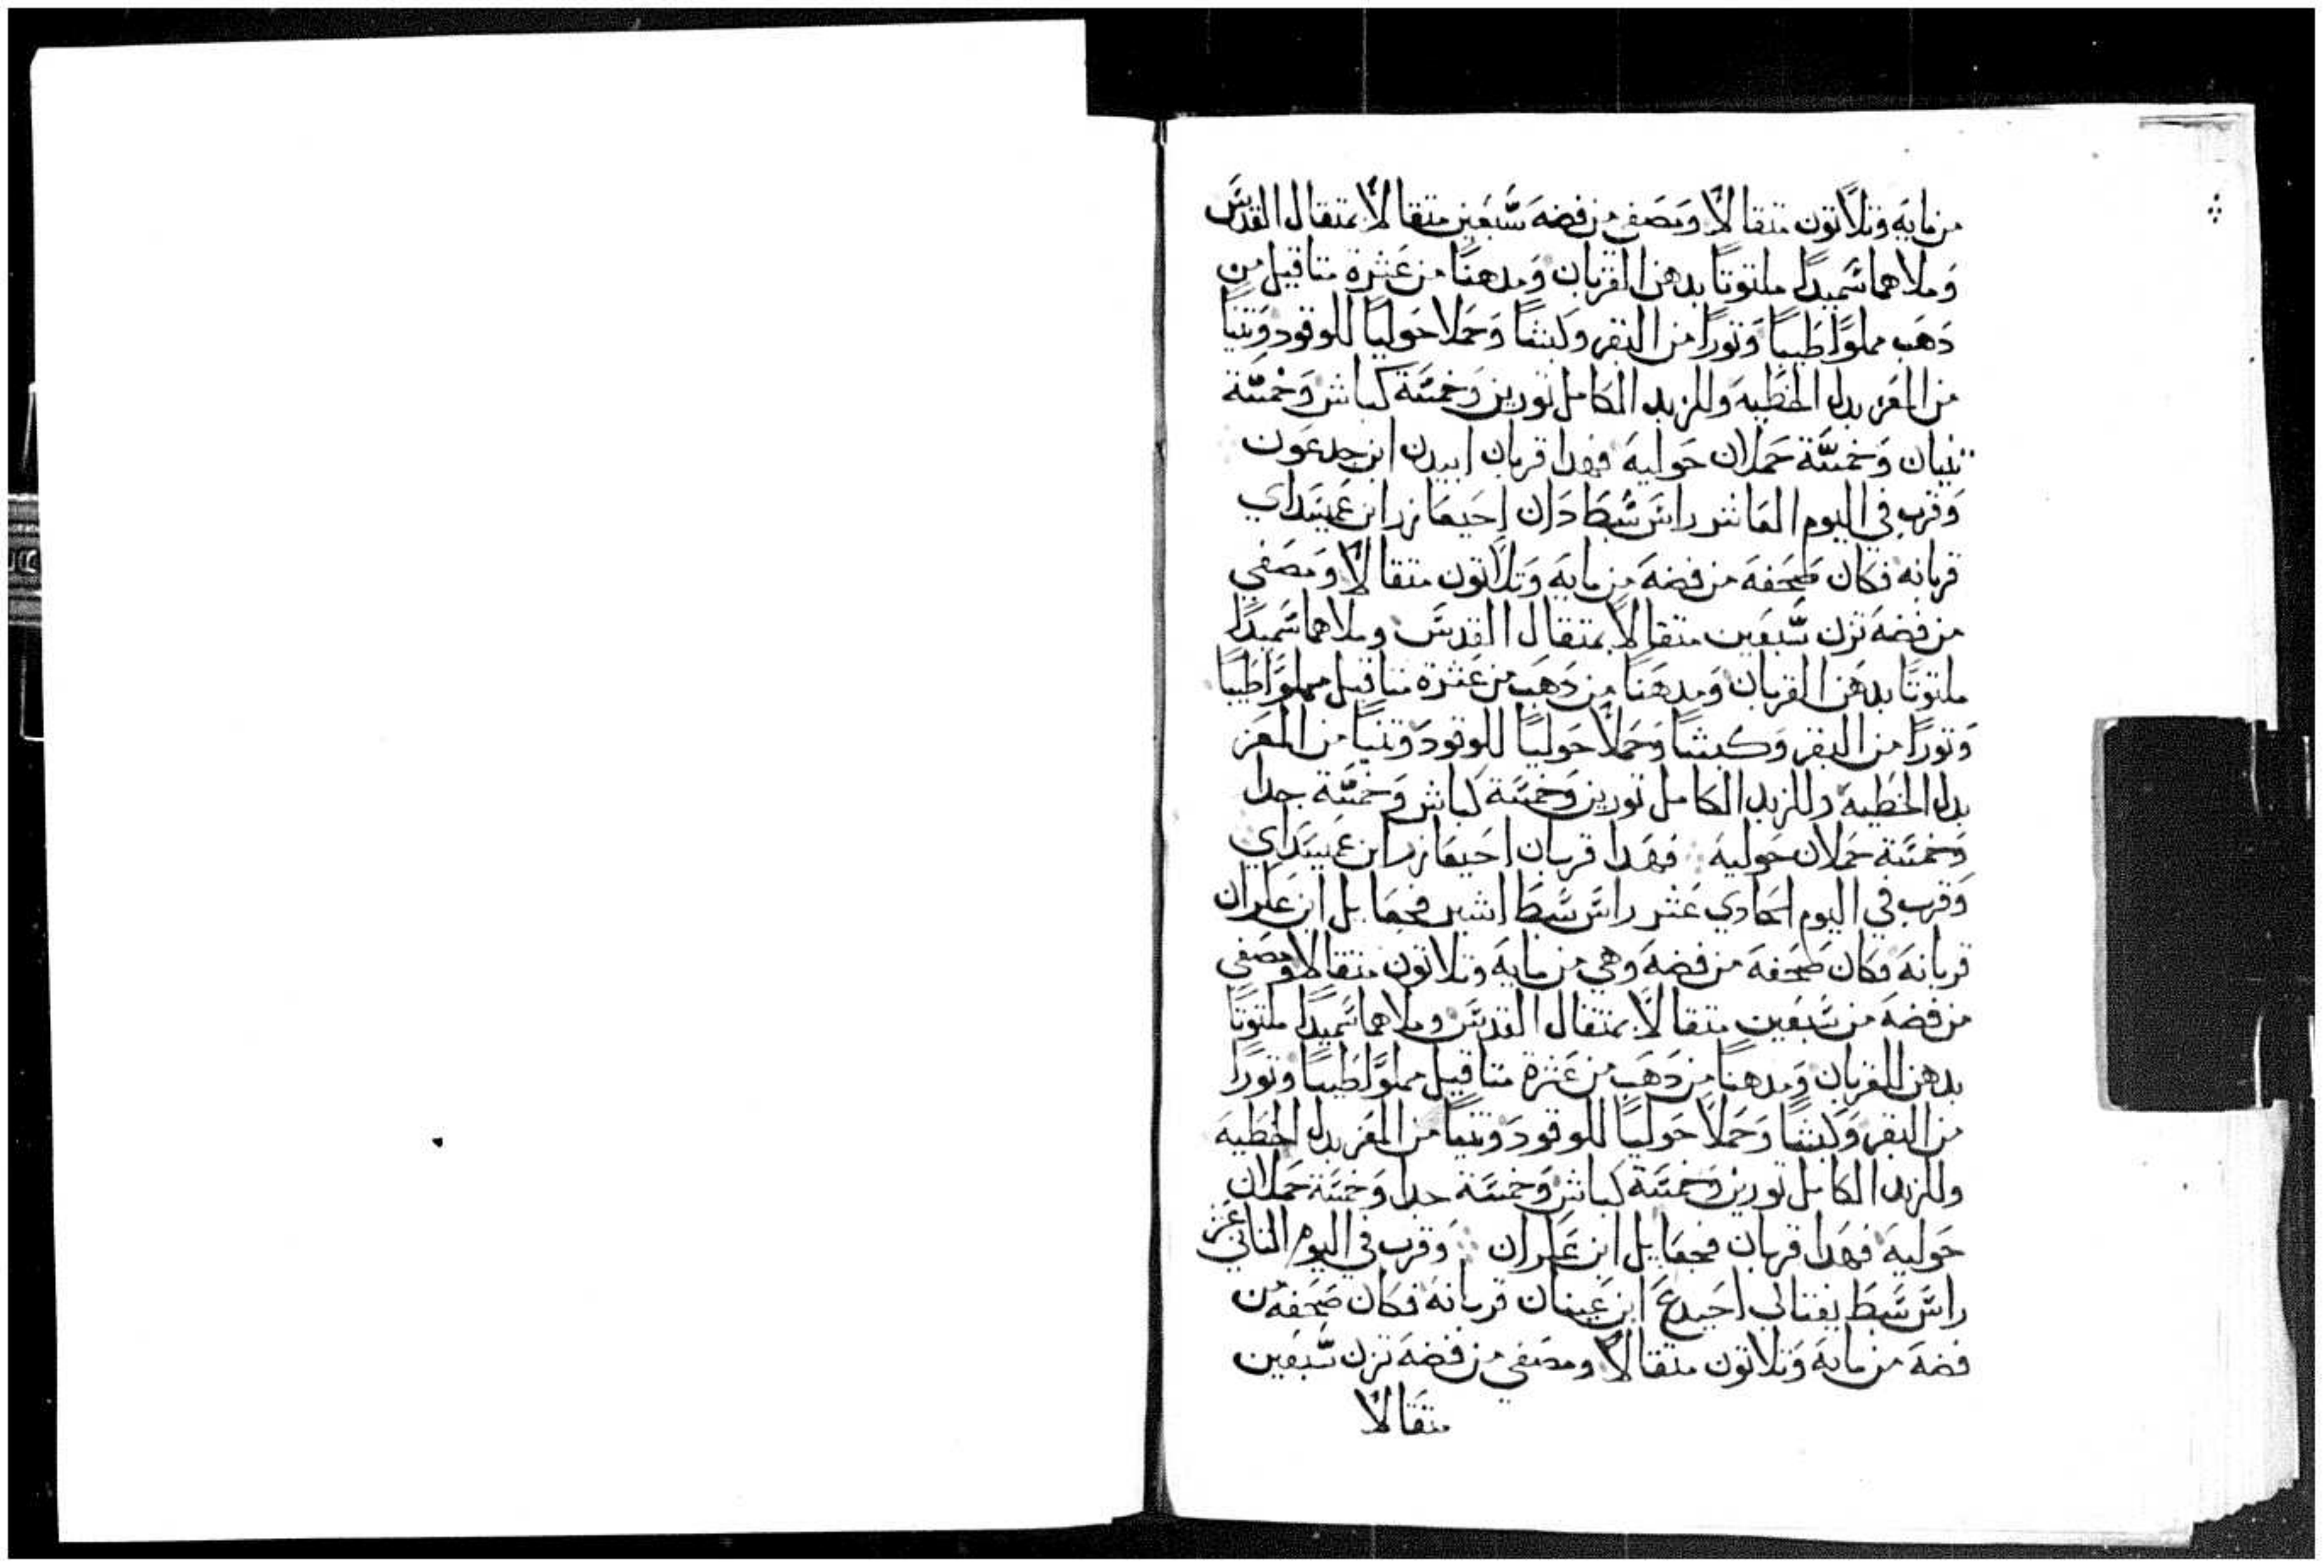 من مايه وتلاتون متقالا ومصفي من فضه سبعين متقالا بمتقال القدس
وملاهما سميدا ملتوتا بدهن القربان ومدهنا من عشرة متاقيل من
دهب مملوا طيبا وتورا من البقر وكبشا وحملا حوليا للوقود وتنيا
من المعز بدل الخطيه وللزبد الكامل تورين وخمسة كباش وخمسة
تنيان وخمسة حملان حوليه فهدا قربان ابيدن ابن جدعون
وقرب في اليوم العاشر راس سبط دان احيعازر ابن عميسداي
قربانه فكان صحفه من فضه من مايه وتلاتون متقالا ومصفي
من فضه تزن سبعين متقالا بمتقال القدس وملاهما سميدا
ملتوتا بدهن القربان ومدهنا من دهب من عشرة متاقيل مملوا طيبا
وتورا من البقر وكبشا وحملا حوليا للوقود وتنيا من المعز
بدل الخطيه وللزبد الكامل تورين وخمسة كباش وخمسة جدا
وخمسة حملان حوليه فهدا قربان احيعازر ابن عميسداي
وقرب في اليوم الحادي عشر راس سبط اشير فجعايل ابن عكران
قربانه فكان صحفه من فضه وهي من مايه وتلاتون متقالا ومصفي
من فضه من سبعين متقالا بمتقال القدس وملاهما سميدا ملتوتا
بدهن القربان ومدهنا من دهب من عشرة متاقيل مملوا طيبا وتورا
من البقر وكبشا وحملا حوليا للوقود وتنيا من المعز بدل الخطيه
وللزبد الكامل تورين وخمسة كباش وخمسة جدا وخمسة حملان
حوليه فهدا قربان فجعايل ابن عكران وقرب في اليوم التاني عشر
راس سبط يفتالي احيدع ابن عينان قربانه فكان صحفه من
فضه من مايه وتلاتون متقالا ومصفي من فضه تزن سبعين
متقالا